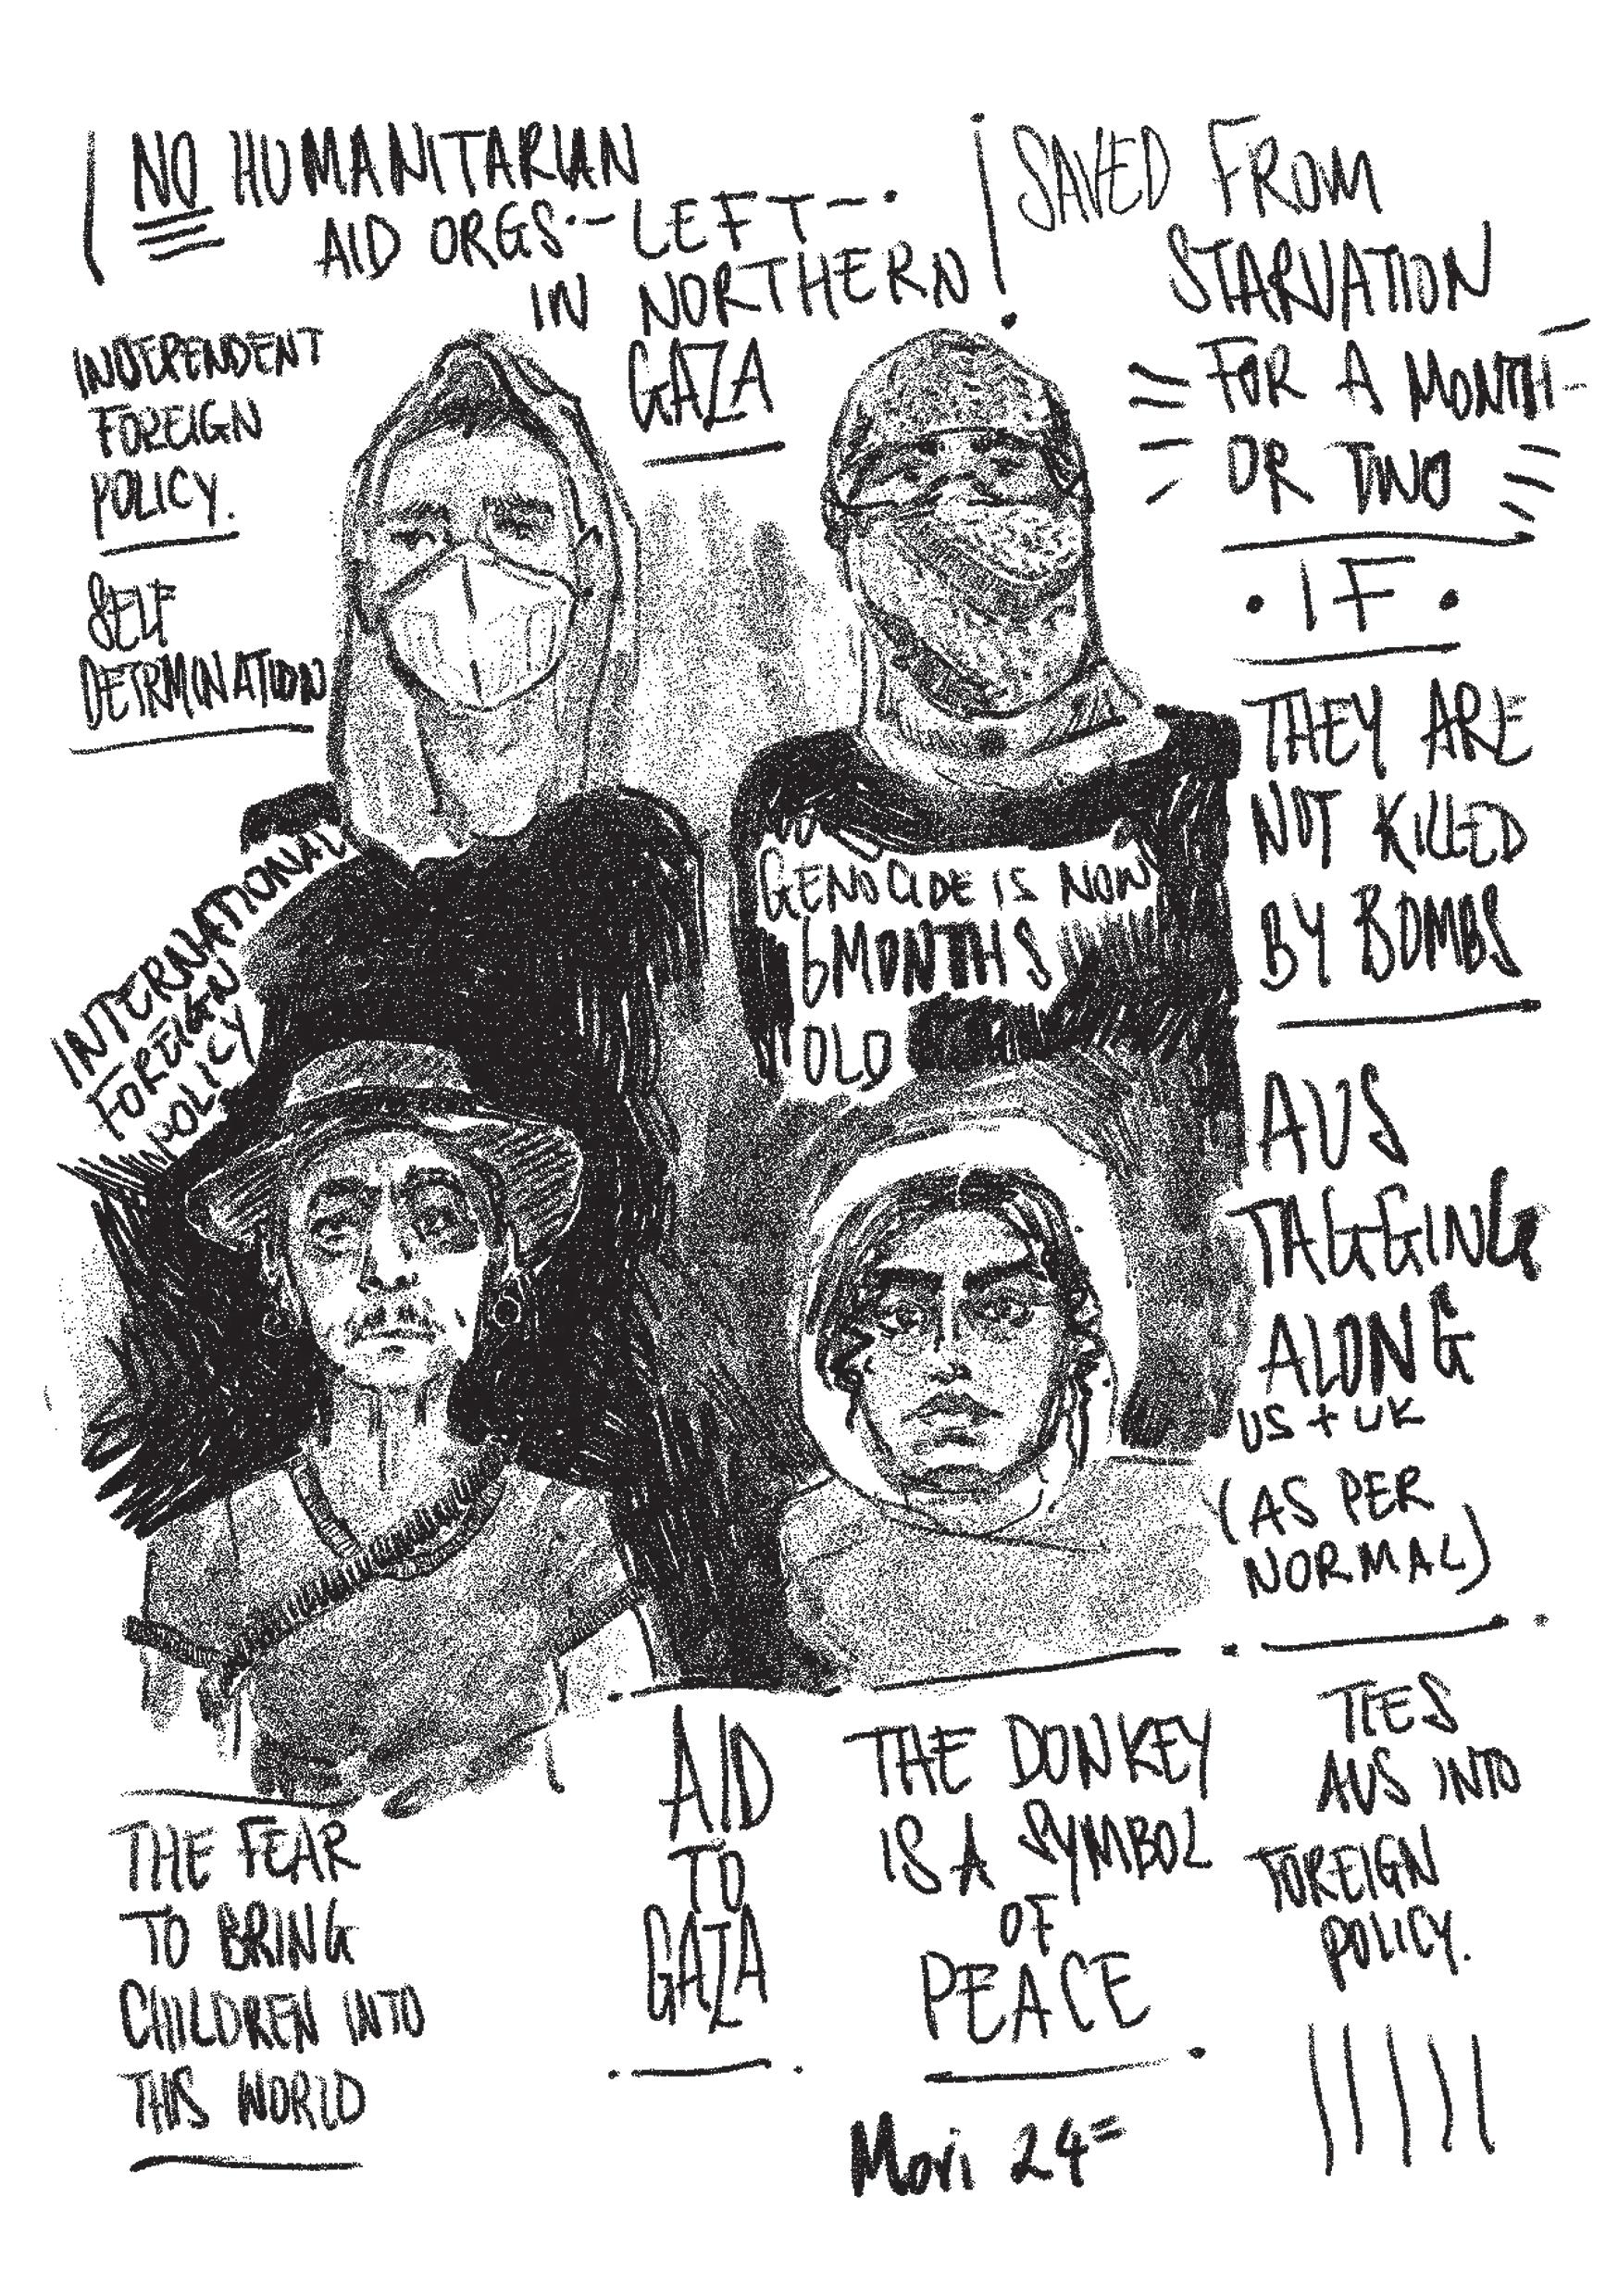 NO HUMANITARIAN
AID ORGS·-LEFT-·
IN NORTHERN
GAZA
SAVED FROM
STARVATION
FOR A MONTH-
OR TWO
·IF·
THEY ARE
NOT KILLED
BY BOMBS
INDEPENDENT
FOREIGN
POLICY.
SELF
DETRMINATION
INTERNATIONAL
FOREIGN
POLICY
GENOCIDE IS NOW
6MONTHS
OLD
AUS
TAGGING
ALONG
US + UK
(AS PER
NORMAL)
THE FEAR
TO BRING
CHILDREN INTO
THIS WORLD
AID
TO
GAZA
THE DONKEY
IS A SYMBOL
OF
PEACE
TIES
AUS INTO
FOREIGN
POLICY.
Mori 24=